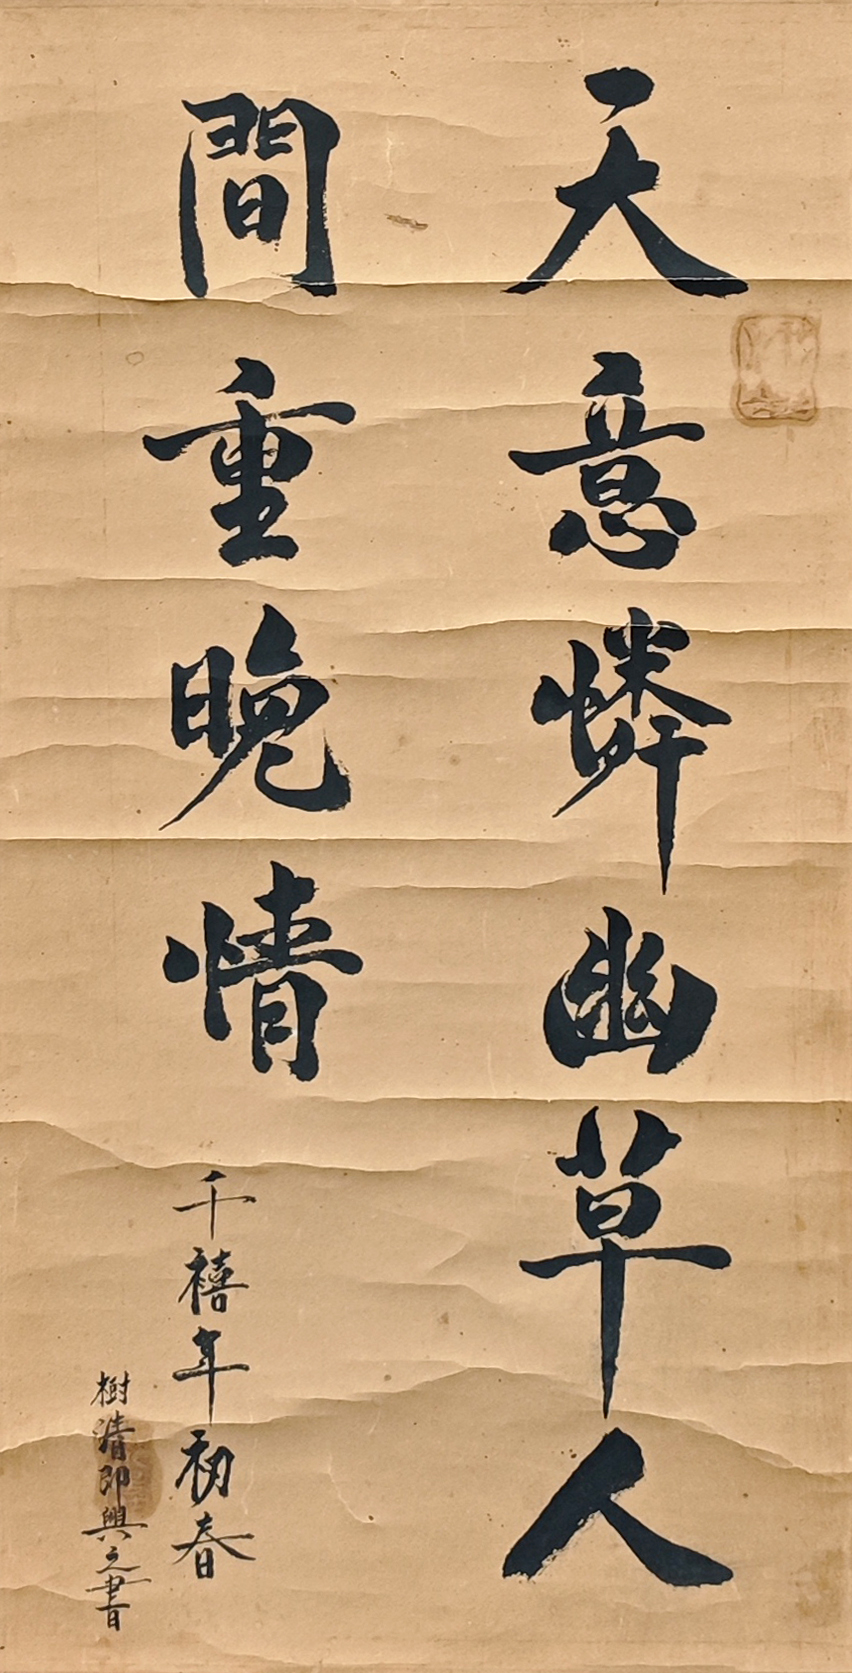 天意憐幽草人
間重晚情
千禧年初春
樹清即興之書